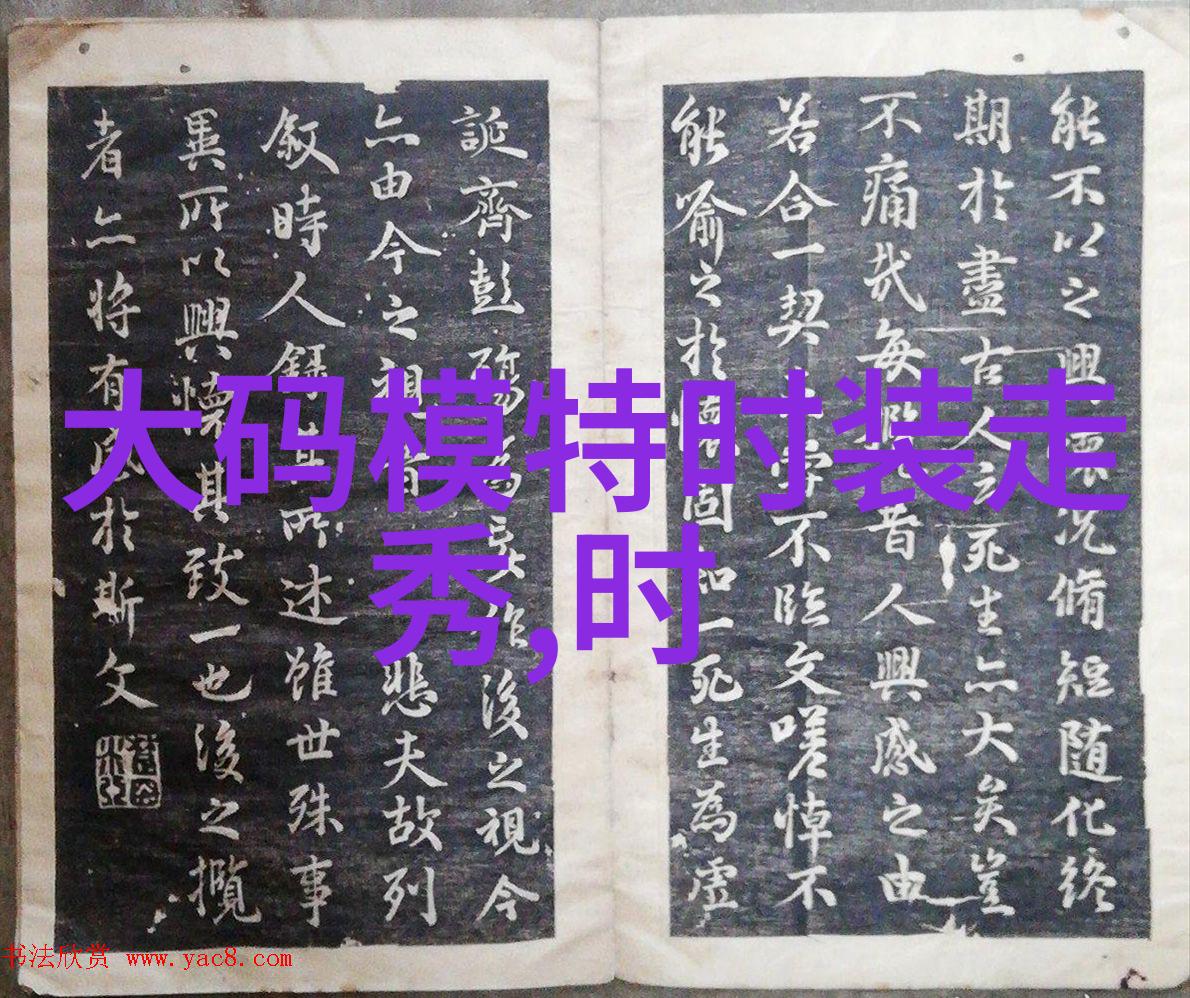 能不以之興懷況脩短随化終
期於盡古人之死生亦大矣豈
不痛哉每臨昔人興感之由
若合一契嘗不臨文嗟悼不
能喻之於懷固知一死生為虛
誕齊彭殤為妄作後之視今
亦由今之視昔悲夫故列
敘時人錄其所述雖世殊事
異所以興懷其致一也後之攬
者亦將有感於斯文
大码模特时装走
秀,时
书法欣赏 www.yac8.com